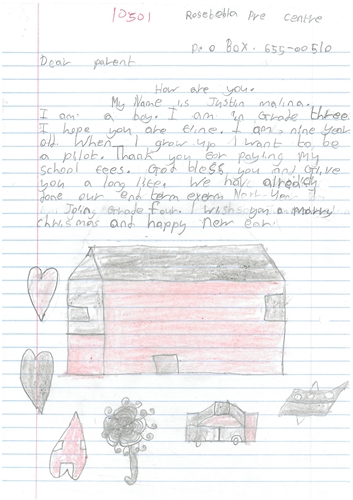 10501 Rosebella Pre Centre
P.O Box. 655-00510
Dear parent
How are you.
My Name is Justin malina.
I am a boy. I am in Grade three.
I hope you are fine. I am nine year
old. When I grow up I want to be
a pilot. Thank you for paying my
school fees. God bless you and give
you a long life. We have already
done our end term exam. Next year I
Join grade four. I wish you a marry
christmas and happy new ear.